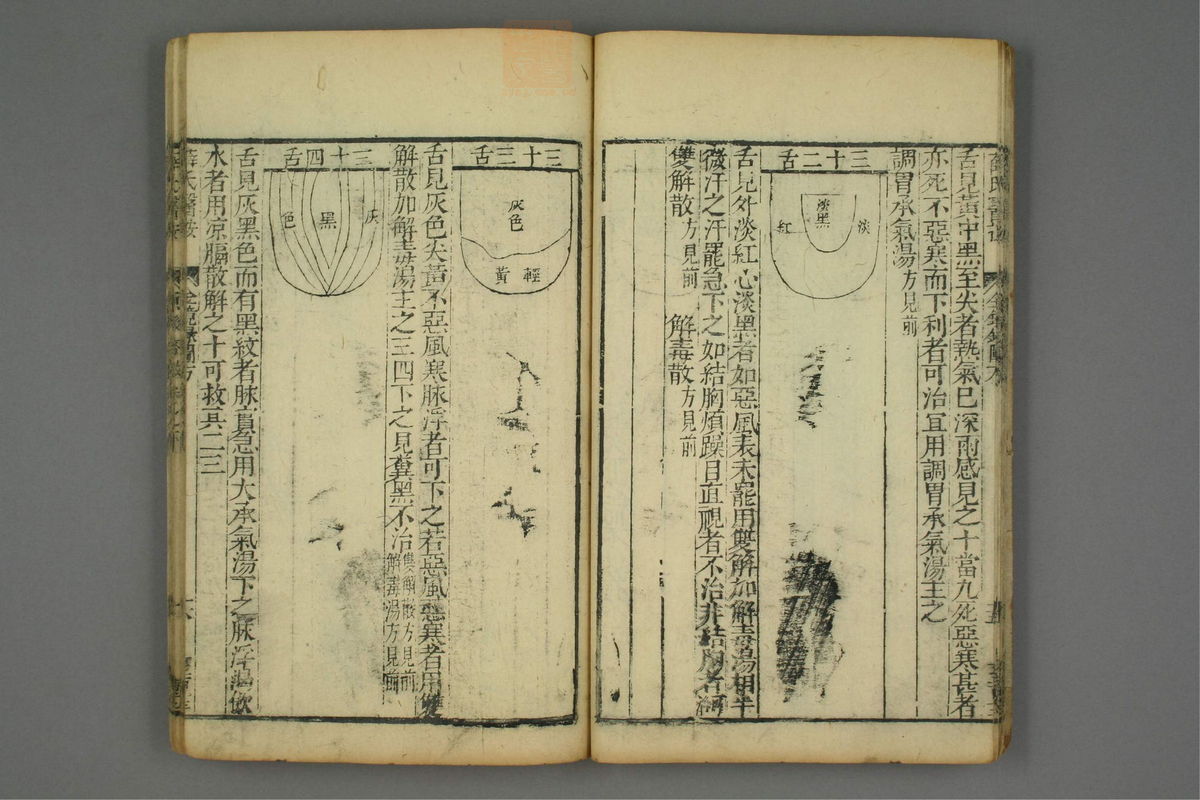 舌見黃中黑至尖者熱氣已深兩感見之十當九死惡寒甚者
亦死不惡寒而下利者可治宜用調胃承氣湯主之
調胃承氣湯方見前
三十二舌
淡黑
淡
紅
舌見外淡紅心淡黑者如惡風表未罷用雙解加解毒湯相半
微汗之汗罷急下之如結胸煩躁目直視者不治非結胸者
雙解散方見前 解毒散方見前
三十三舌
灰色
輕
黃
舌見灰色尖黃不惡風寒脉浮者可下之若惡風惡寒者用雙
解散加解毒湯主之三四下之見糞黑不治雙解散方見前解毒湯方見前
三十四舌
灰
黑
色
舌見灰黑色而有黑紋者脉實急用大承氣湯下之脉浮渴飲
水者用凉膈散解之十可救其二三
薛氏醫按